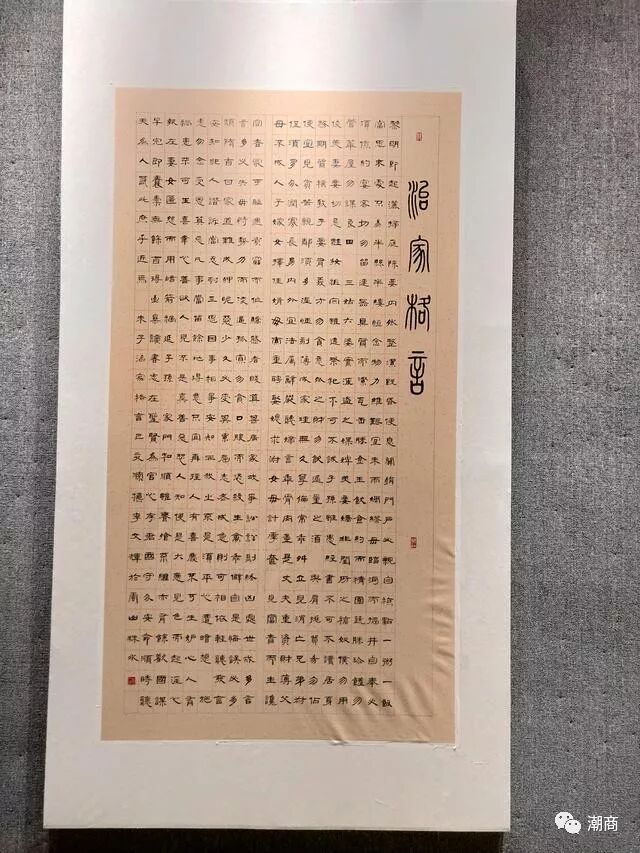 治家格言
黎明即起洒掃庭除要內外整潔既昏便息關鎖門戶必親自檢點一粥一飯
當思來處不易半絲半縷恆念物力維艱宜未雨綢繆毋臨渴而掘井自奉必
須儉約宴客切勿留連器具質而潔瓦缶勝金玉飲食約而精園蔬勝珍饈勿
營華屋勿謀良田 三姑六婆實淫盜之媒婢美妾嬌非閨房之福奴僕勿用
俊美妻妾切忌豔妝祖宗雖遠祭祀不可不誠子孫雖愚經書不可不讀居身
務期質樸教子要有義方勿貪意外之財勿飲過量之酒 與肩挑貿易勿佔
便宜見貧苦親鄰須多溫恤刻薄成家理無久享倫常乖舛立見消亡兄弟叔
侄須多分潤寡長幼內外宜法屬辭嚴聽婦言乖骨肉豈是 丈夫重資財薄父
母不成人子嫁女擇佳婿毋索重聘娶媳求淑女毋計厚奩 見富貴而生讒
容者最可恥遇貧窮而作驕態者賤莫甚居家戒爭訟訟則終凶處世戒多言
言多必失毋恃勢力而凌逼孤寡勿貪口腹而恣殺生禽乖僻自是悔誤必多
頹惰自甘家道難成狎昵惡少久必受其累屈志老成急則可相依輕聽發言
安知非人譖訴當忍耐三思因事相爭安知非我之不是須平心遭暗想 施
惠勿念受恩莫忘凡事當留餘地得意不宜再往人有喜慶不可生妒心人有
禍患不可生喜幸心善欲人見不是真善惡恐人知便是大惡見色而起淫心
報在妻女匿怨而用暗箭禍延子孫 家門和順雖饔飧不繼亦有餘歡國課
早完即囊橐無餘自得至樂讀書志在聖賢為官心存君國守分安命順時聽
天為人若此庶乎近焉 朱子治家格言己亥 李文輝於 山 水
潮商